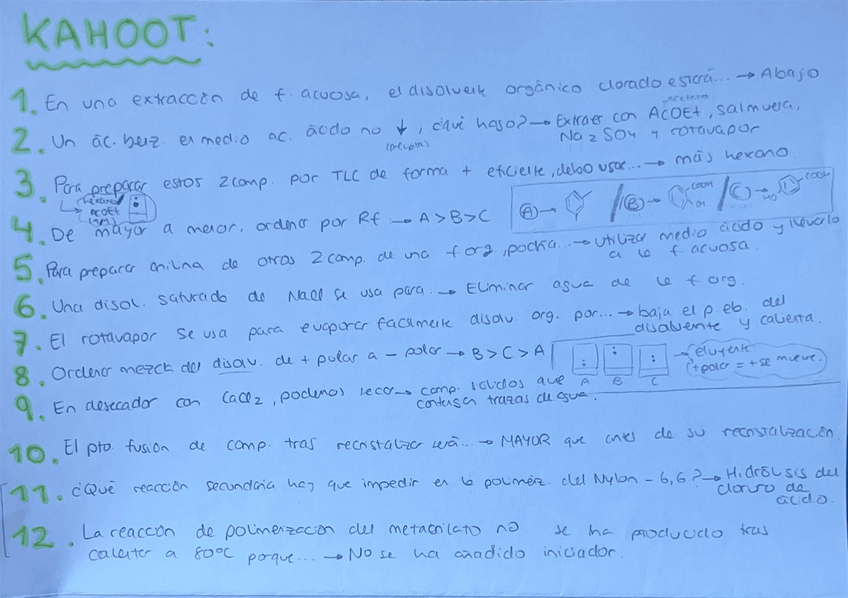 KAHOOT:
1. En una extracción de f. acuosa, el disolvente orgánico clorado estará... → Abajo
2. Un ác. benz. en medio ac. ácido no ↓, ¿qué hago? → Extraer con ACOEt, salmuera,
(precipita)
Na2SO4 y rotavapor
3. Para preparar estos 2 comp. por TLC de forma + eficiente, debo usar... → más hexano
hexano
ACOEt
4. De mayor a menor, ordenar por Rf → A > B > C
A → / B → COOH OH / C → HO COOH
5. Para preparar anilina de otros 2 comp. de una f org, podría... → Utilizar medio ácido y llevarlo
a la f acuosa.
6. Una disol. saturada de NaCl se usa para: → Eliminar agua de la f org.
7. El rotavapor se usa para evaporar facilmente disolv. org. por... → baja el p. eb. del
disolvente y calienta.
8. Ordenar mezcla del disolv. de + polar a - polar → B > C > A
A B C
eluyente
(+polar = + se mueve.
9. En desecador con CaCl2, podemos secar → comp. sólidos que
contengan trazas de agua.
10. El pto. fusión de comp. tras recristalizar será... → MAYOR que antes de su recristalización
11. ¿Qué reacción secundaria hay que impedir en la polimeriz. del Nylon - 6,6? → Hidrólisis del
cloruro de
ácido.
12. La reacción de polimerización del metacrilato no se ha producido tras
calentar a 80ºC porque... → No se ha añadido iniciador.